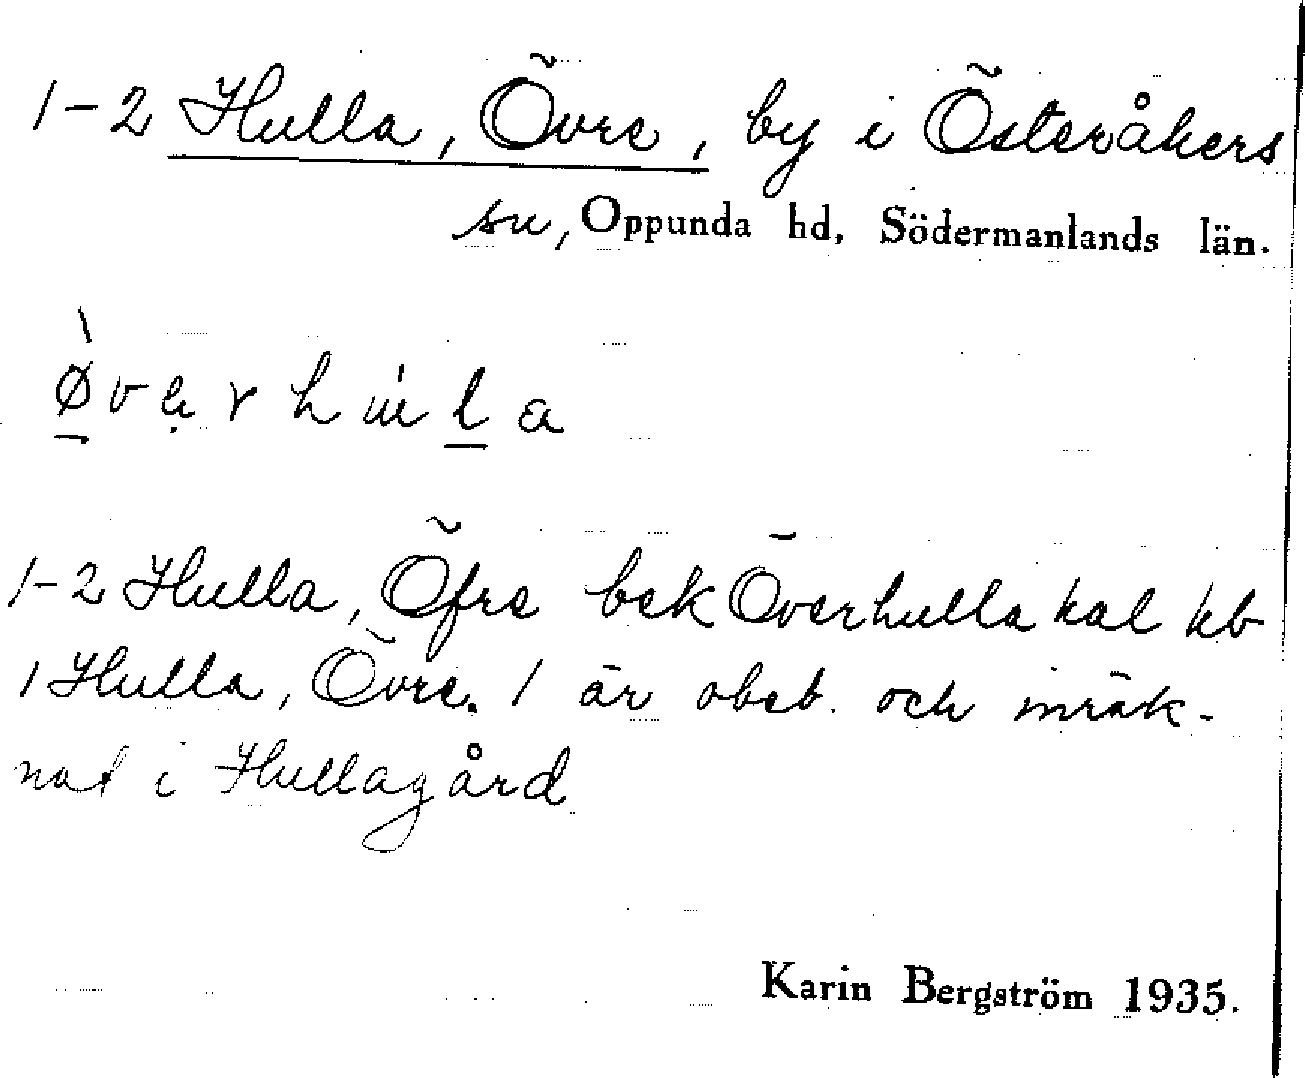 1-2 Hulla, Övre, by i Österåkers
sn, Oppunda hd, Södermanlands län.
1-2 Hulla, Öfre bek Överhulla kal kb
1 Hulla, Övre. 1 är obeb. och inräk-
nat i Hullagård
Karin Bergström 1935.